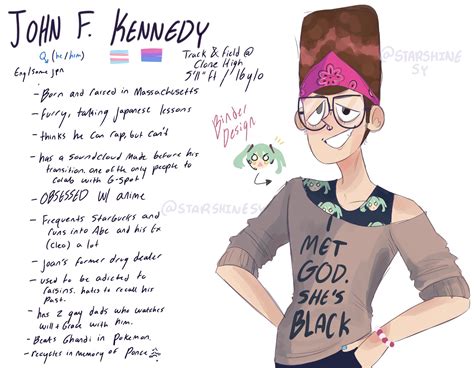 JOHN F. KENNEDY
(he/him)
Track & field @
Clone High
5'11" ft / 16y/o
- Born and raised in Massachusetts
- Furry, talking Japanese lessons
- thinks he can rap, but can't
- has a soundcloud made before his
transition. one of the only people to
colab with G-spot
- OBSESSED w/ anime
- Frequents Starbucks and
runs into Abe and his Ex
(Cleo) a lot
- Joan's former drug dealer
- used to be adicted to
raisins. hates to recall his
past.
- has 2 gay dads who watches
will & Grace with him.
- Beats Ghandi in Pokemon.
- recycles in memory of Ponce
Binder
Design
@STARSHINE
SY
@STARSHINESY
I
MET
GOD.
SHE'S
BLACK